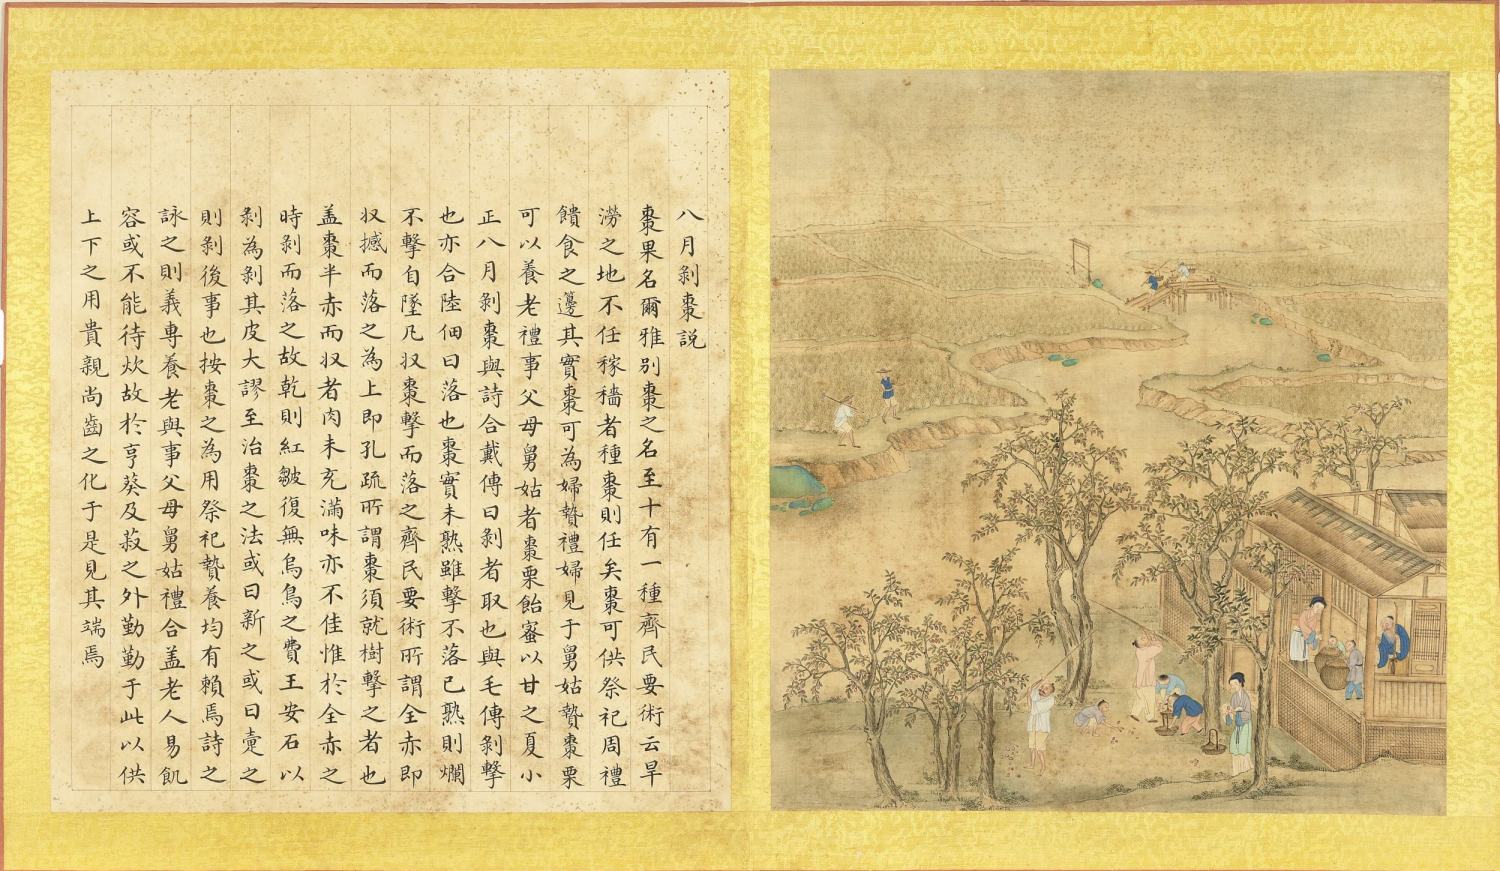 八月剥棗説
棗果名爾雅别棗之名至十有一種齊民要術云旱
澇之地不任稼穡者種棗則任矣棗可供祭祀周禮
饋食之籩其實棗可為婦贄禮婦見于舅姑贄棗栗
可以養老禮事父母舅姑者棗栗飴蜜以甘之夏小
正八月剥棗與詩合戴傳曰剥者取也與毛傳剥擊
也亦合陸佃曰落也棗實未熟雖擊不落已熟則爛
不擊自墜凡収棗擊而落之齊民要術所謂全赤即
収撼而落之為上即孔疏所謂棗須就樹擊之者也
盖棗半赤而収者肉未充滿味亦不佳惟於全赤之
時剥而落之故乾則紅皺復無烏鳥之費王安石以
剥為剥其皮大謬至治棗之法或曰新之或曰疐之
則剥後事也按棗之為用祭祀贄養均有賴焉詩之
詠之則義專養老與事父母舅姑禮合盖老人易飢
容或不能待炊故於亨葵及菽之外勤勤于此以供
上下之用貴親尚齒之化于是見其端焉